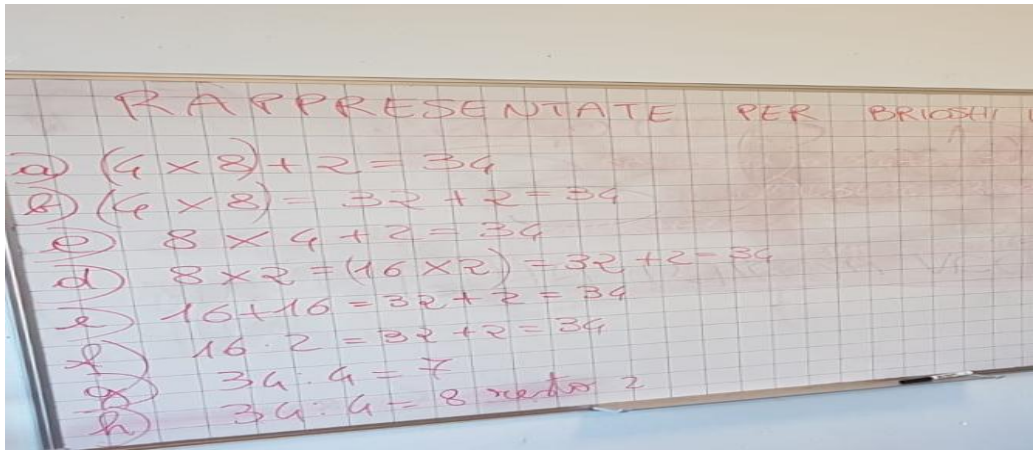 RAPPRESENTATE PER BRIOSHI
a) (4 × 8) + 2 = 34
b) (4 × 8) = 32 + 2 = 34
c) 8 × 4 + 2 = 34
d) 8 × 2 = (16 × 2) = 32 + 2 = 34
e) 16 + 16 = 32 + 2 = 34
f) 16 · 2 = 32 + 2 = 34
g) 34 : 4 = 7
h) 34 : 4 = 8 resto 2